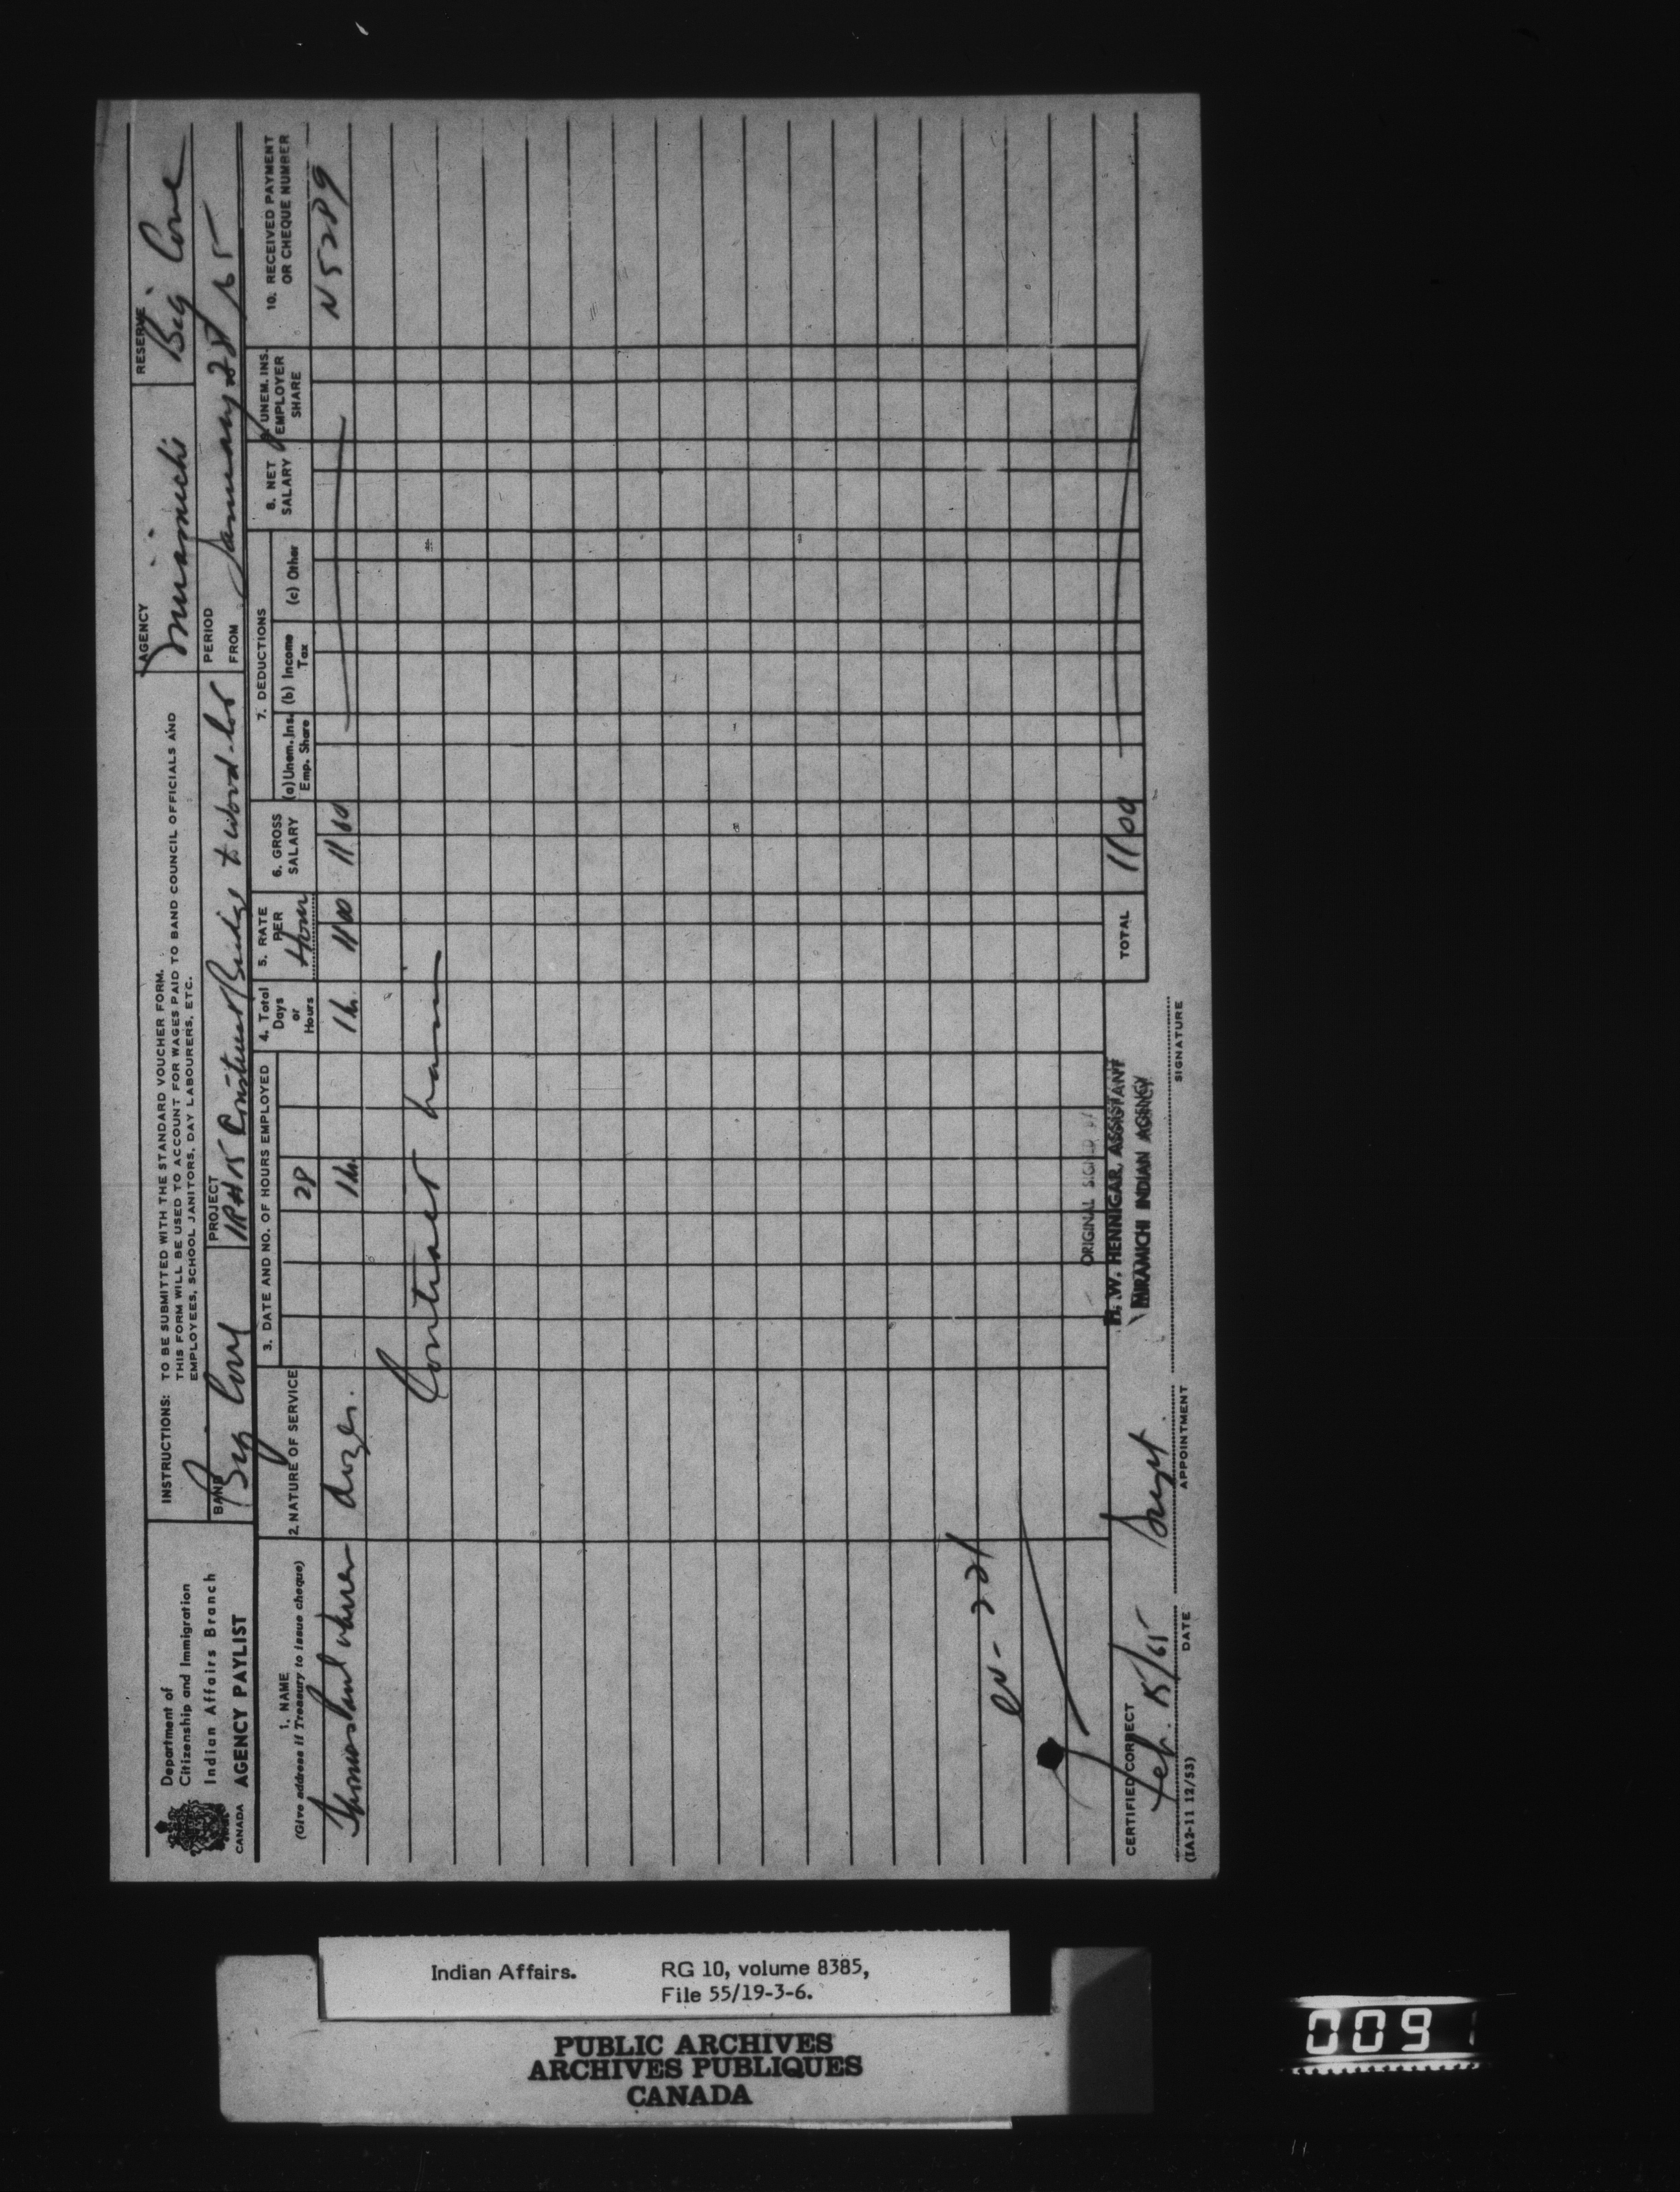 Department of
Citizenship and Immigration
Indian Affairs Branch
CANADA AGENCY PAYLIST
INSTRUCTIONS: TO BE SUBMITTED WITH THE STANDARD VOUCHER FORM.
THIS FORM WILL BE USED TO ACCOUNT FOR WAGES PAID TO BAND COUNCIL OFFICIALS AND
EMPLOYEES, SCHOOL JANITORS, DAY LABOURERS, ETC.
AGENCY
Miramichi
RESERVE
Big Cove
BAND
Big Cove
PROJECT
Construct Bridge to wood-lot
PERIOD
FROM January 28/65
1. NAME
(Give address if Treasury to issue cheque)
2. NATURE OF SERVICE
3. DATE AND NO. OF HOURS EMPLOYED
28
4. Total
Days
or
Hours
5. RATE
PER
Hour
6. GROSS
SALARY
7. DEDUCTIONS
(a) Unem. Ins.
Emp. Share
(b) Income
Tax
(c) Other
8. NET
SALARY
9. UNEM. INS.
EMPLOYER
SHARE
10. RECEIVED PAYMENT
OR CHEQUE NUMBER
dozer. 1 hr. 1 hr. 11 00 11 00 N 5289
Contract
TOTAL 11 00
ORIGINAL SIGNED BY
H. W. HENNIGAR, ASSISTANT
MIRAMICHI INDIAN AGENCY
CERTIFIED CORRECT
Supt
DATE
APPOINTMENT
SIGNATURE
(IA2-11 12/53)
Indian Affairs. RG 10, volume 8385,
File 55/19-3-6.
PUBLIC ARCHIVES
ARCHIVES PUBLIQUES
CANADA
009